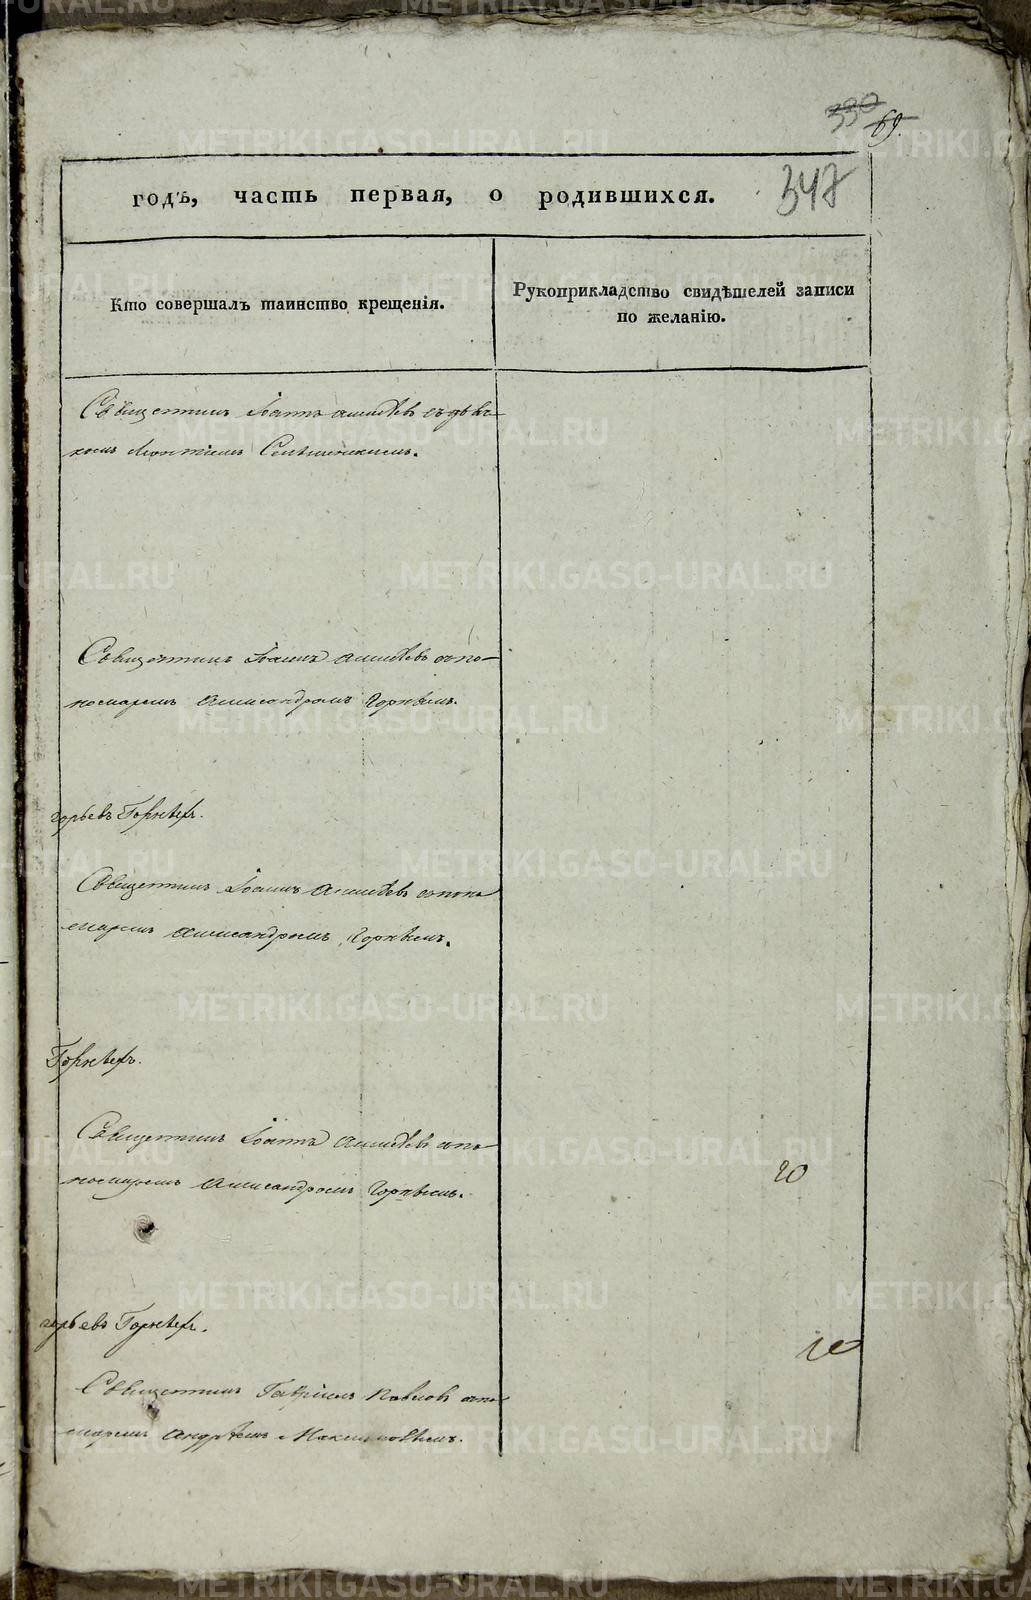 330
69.
347
годъ, часть первая, о родившихся.
Кто совершалъ таинство крещенія.
Рукоприкладство свидѣтелей записи
по желанію.
Священникъ Іоаннъ съ дьяч-
комъ Леонтіемъ
Священникъ Іоаннъ съ по-
номаремъ Александромъ Горнѣемъ.
горьевъ
Священникъ Іоаннъ съ поно
маремъ Александромъ Горнѣемъ.
Священникъ Іоаннъ съ по-
номаремъ Александромъ Горнѣемъ.
20
горьевъ
10
Священникъ Гавріилъ Павловъ съ поно
маремъ Андреемъ Максимовымъ.
METRIKI.GASO-URAL.RU